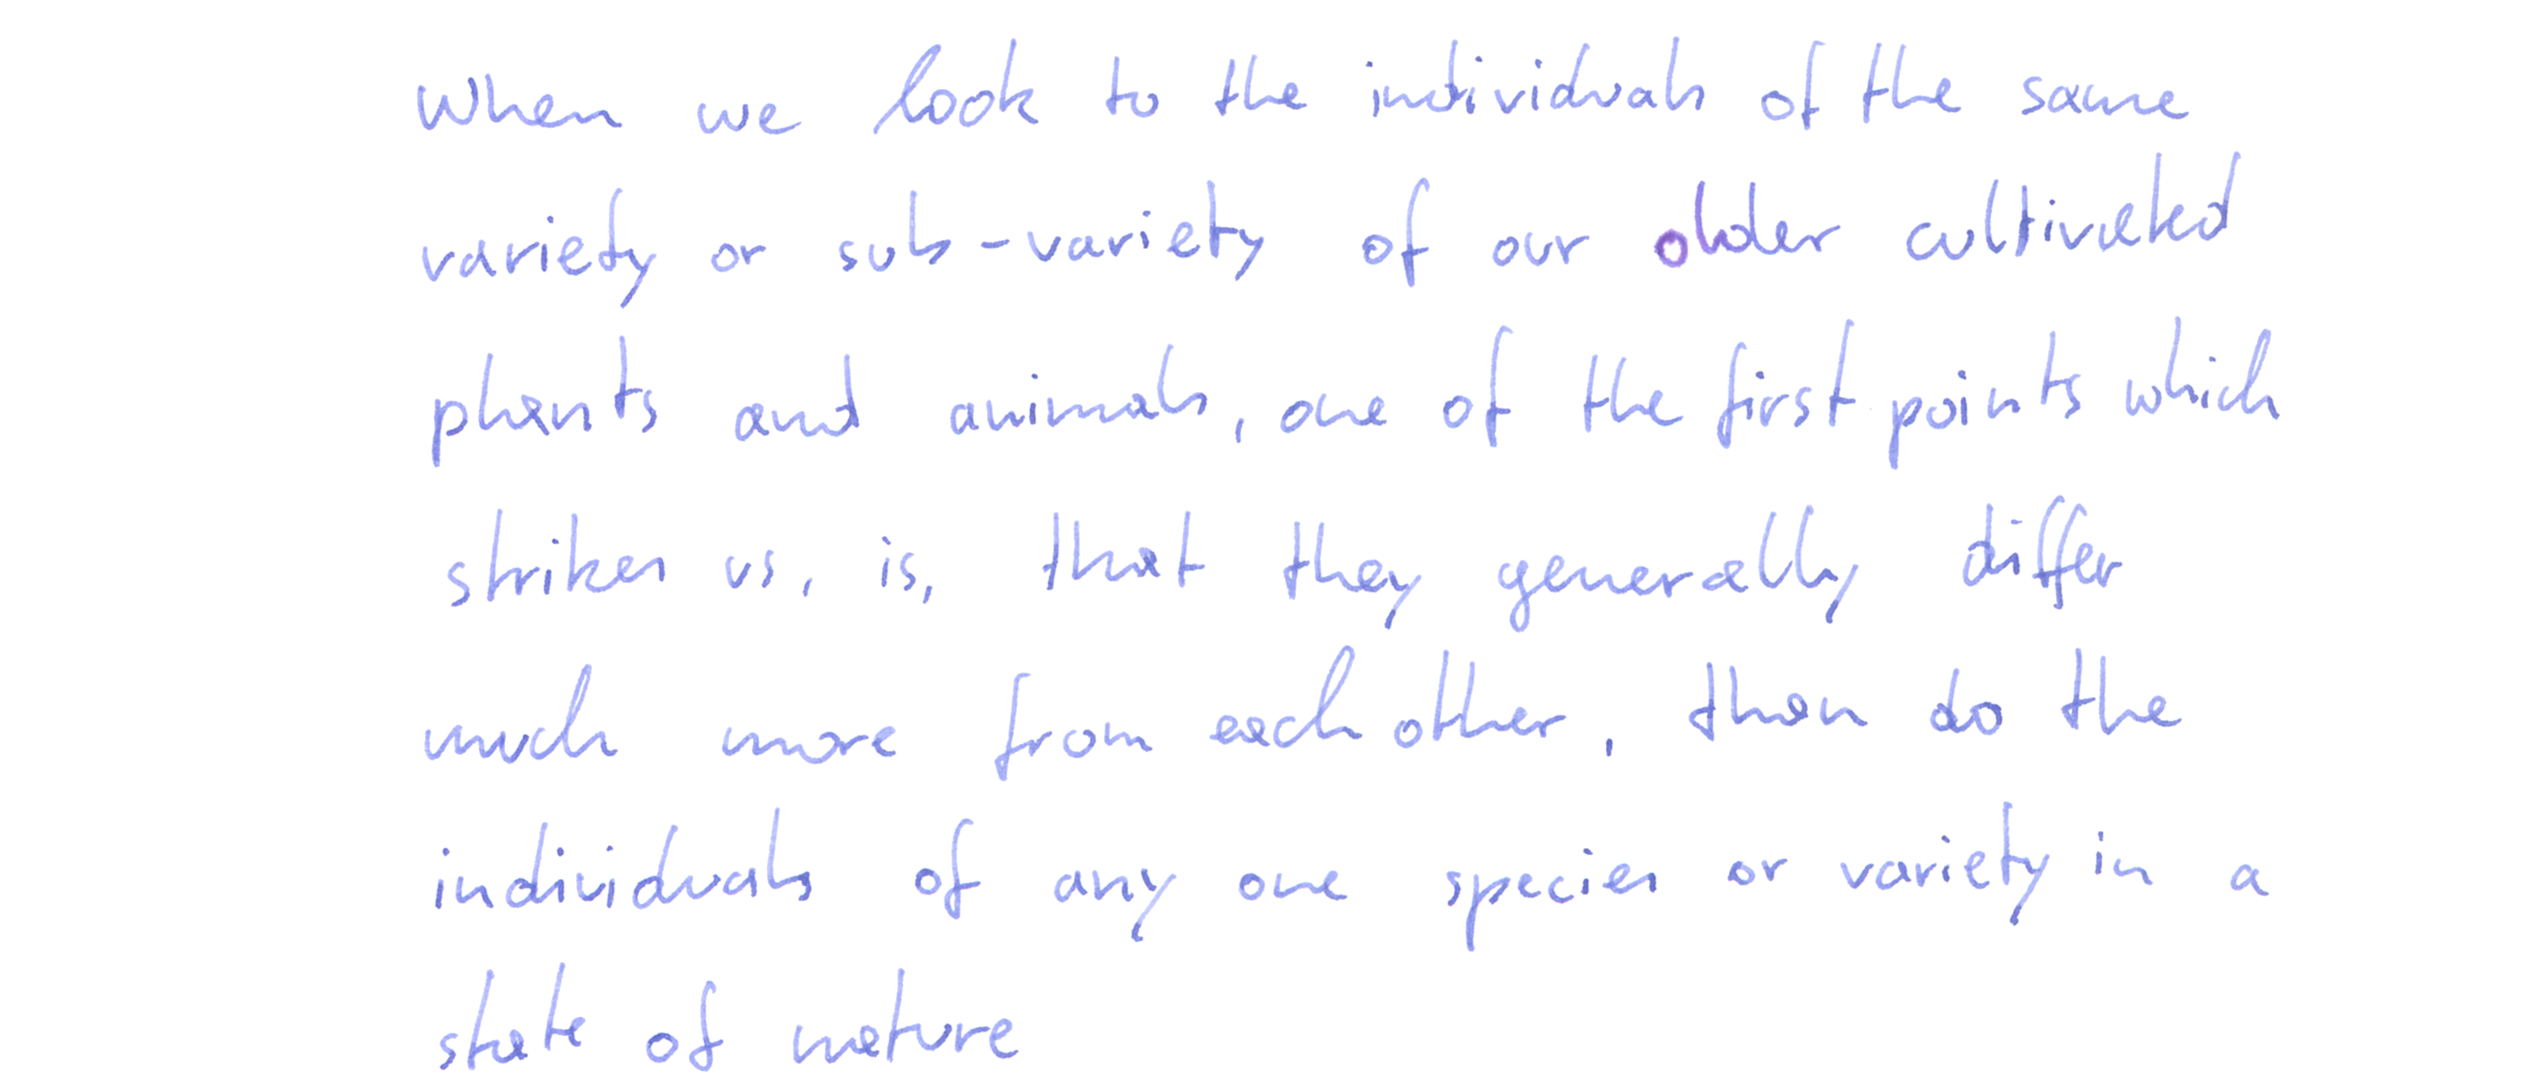 When we look to the individuals of the same
variety or sub-variety of our older cultivated
plants and animals, one of the first points which
strikes us, is, that they generally differ
much more from each other, than do the
individuals of any one species or variety in a
state of nature